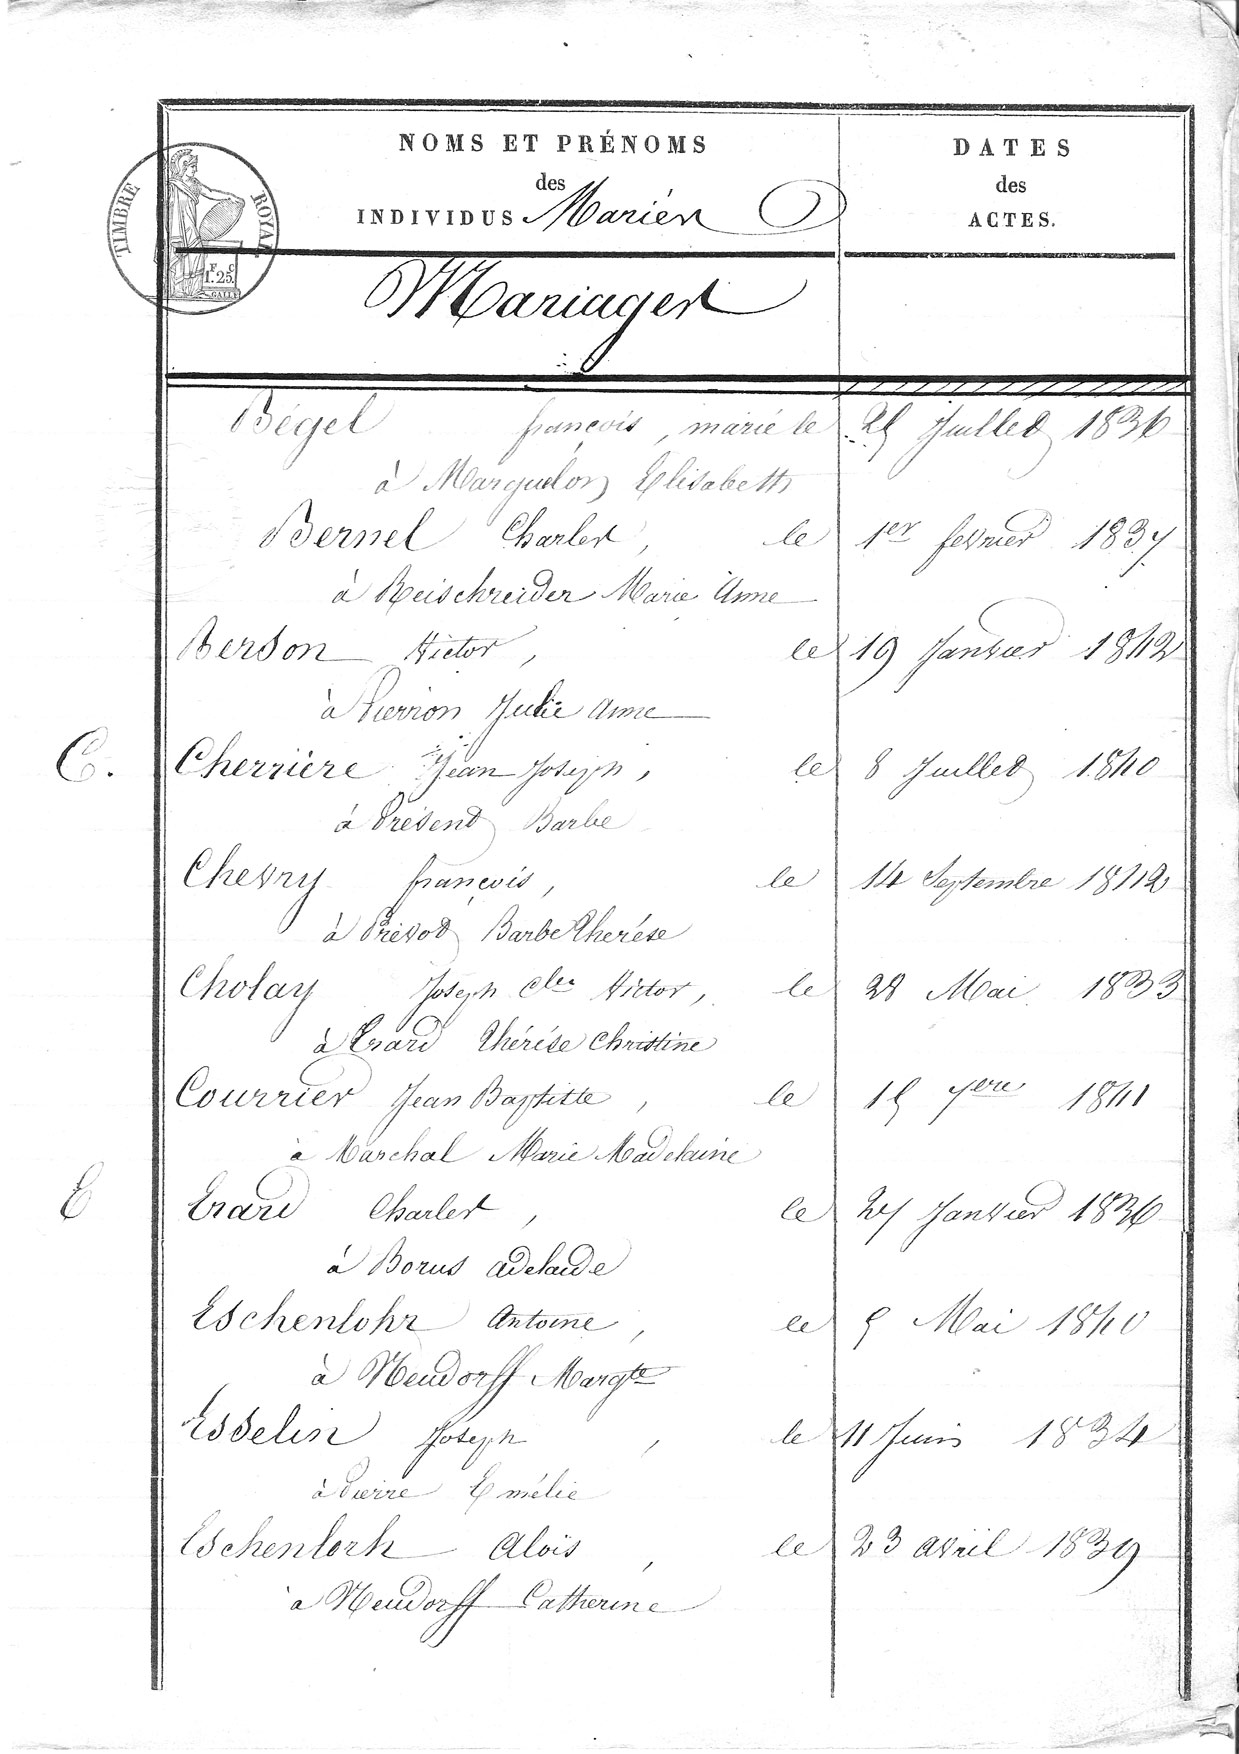 NOMS ET PRÉNOMS
DATES
des
des
INDIVIDUS Mariés
ACTES.
TIMBRE ROYAL
F. C
1.25.
Mariages
Bégel françois, marié le 25 Juillet 1836
à Marguelon Elisabeth
Bernel Charles, le 1er fevrier 1837
à Reischreider Marie Anne
Berson Victor, le 19 Janvier 1842
à Pierron Julie Anne
C. Cherrière Jean Joseph, le 8 Juillet 1840
à Présent Barbe
Chevry françois, le 14 Septembre 1842
à Prévot Barbe Thérése
Cholay Joseph Cles Victor, le 28 Mai 1833
à Erard Thérése Christine
Courrier Jean Baptiste, le 15 7bre 1841
à Marchal Marie Madelaine
E Erard Charles, le 27 Janvier 1836
à Borus adelaide
Eschenlohr Antoine, le 5 Mai 1840
à Neudorff Margte
Esselin Joseph, le 11 Juin 1834
à Pierre Emélie
Eschenlorh Alois, le 23 avril 1839
à Neudorff Catherine